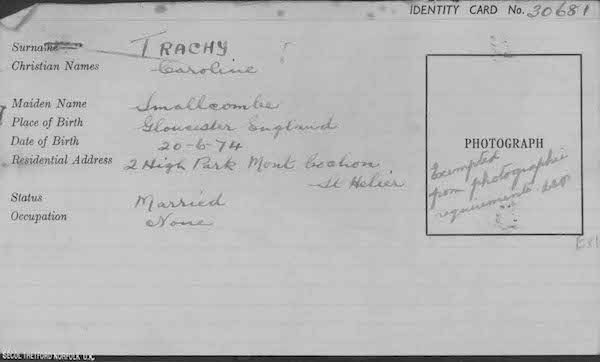 IDENTITY CARD No. 30681
Surname TRACHY
Christian Names Caroline
Maiden Name Smallcombe
Place of Birth Gloucester England
Date of Birth 20-6-74
Residential Address 2 High Park Mont Cochon
St Helier
Status Married
Occupation None
PHOTOGRAPH
Exempted
from photographic
requirements
SECOL THETFORD NORFOLK U.K.